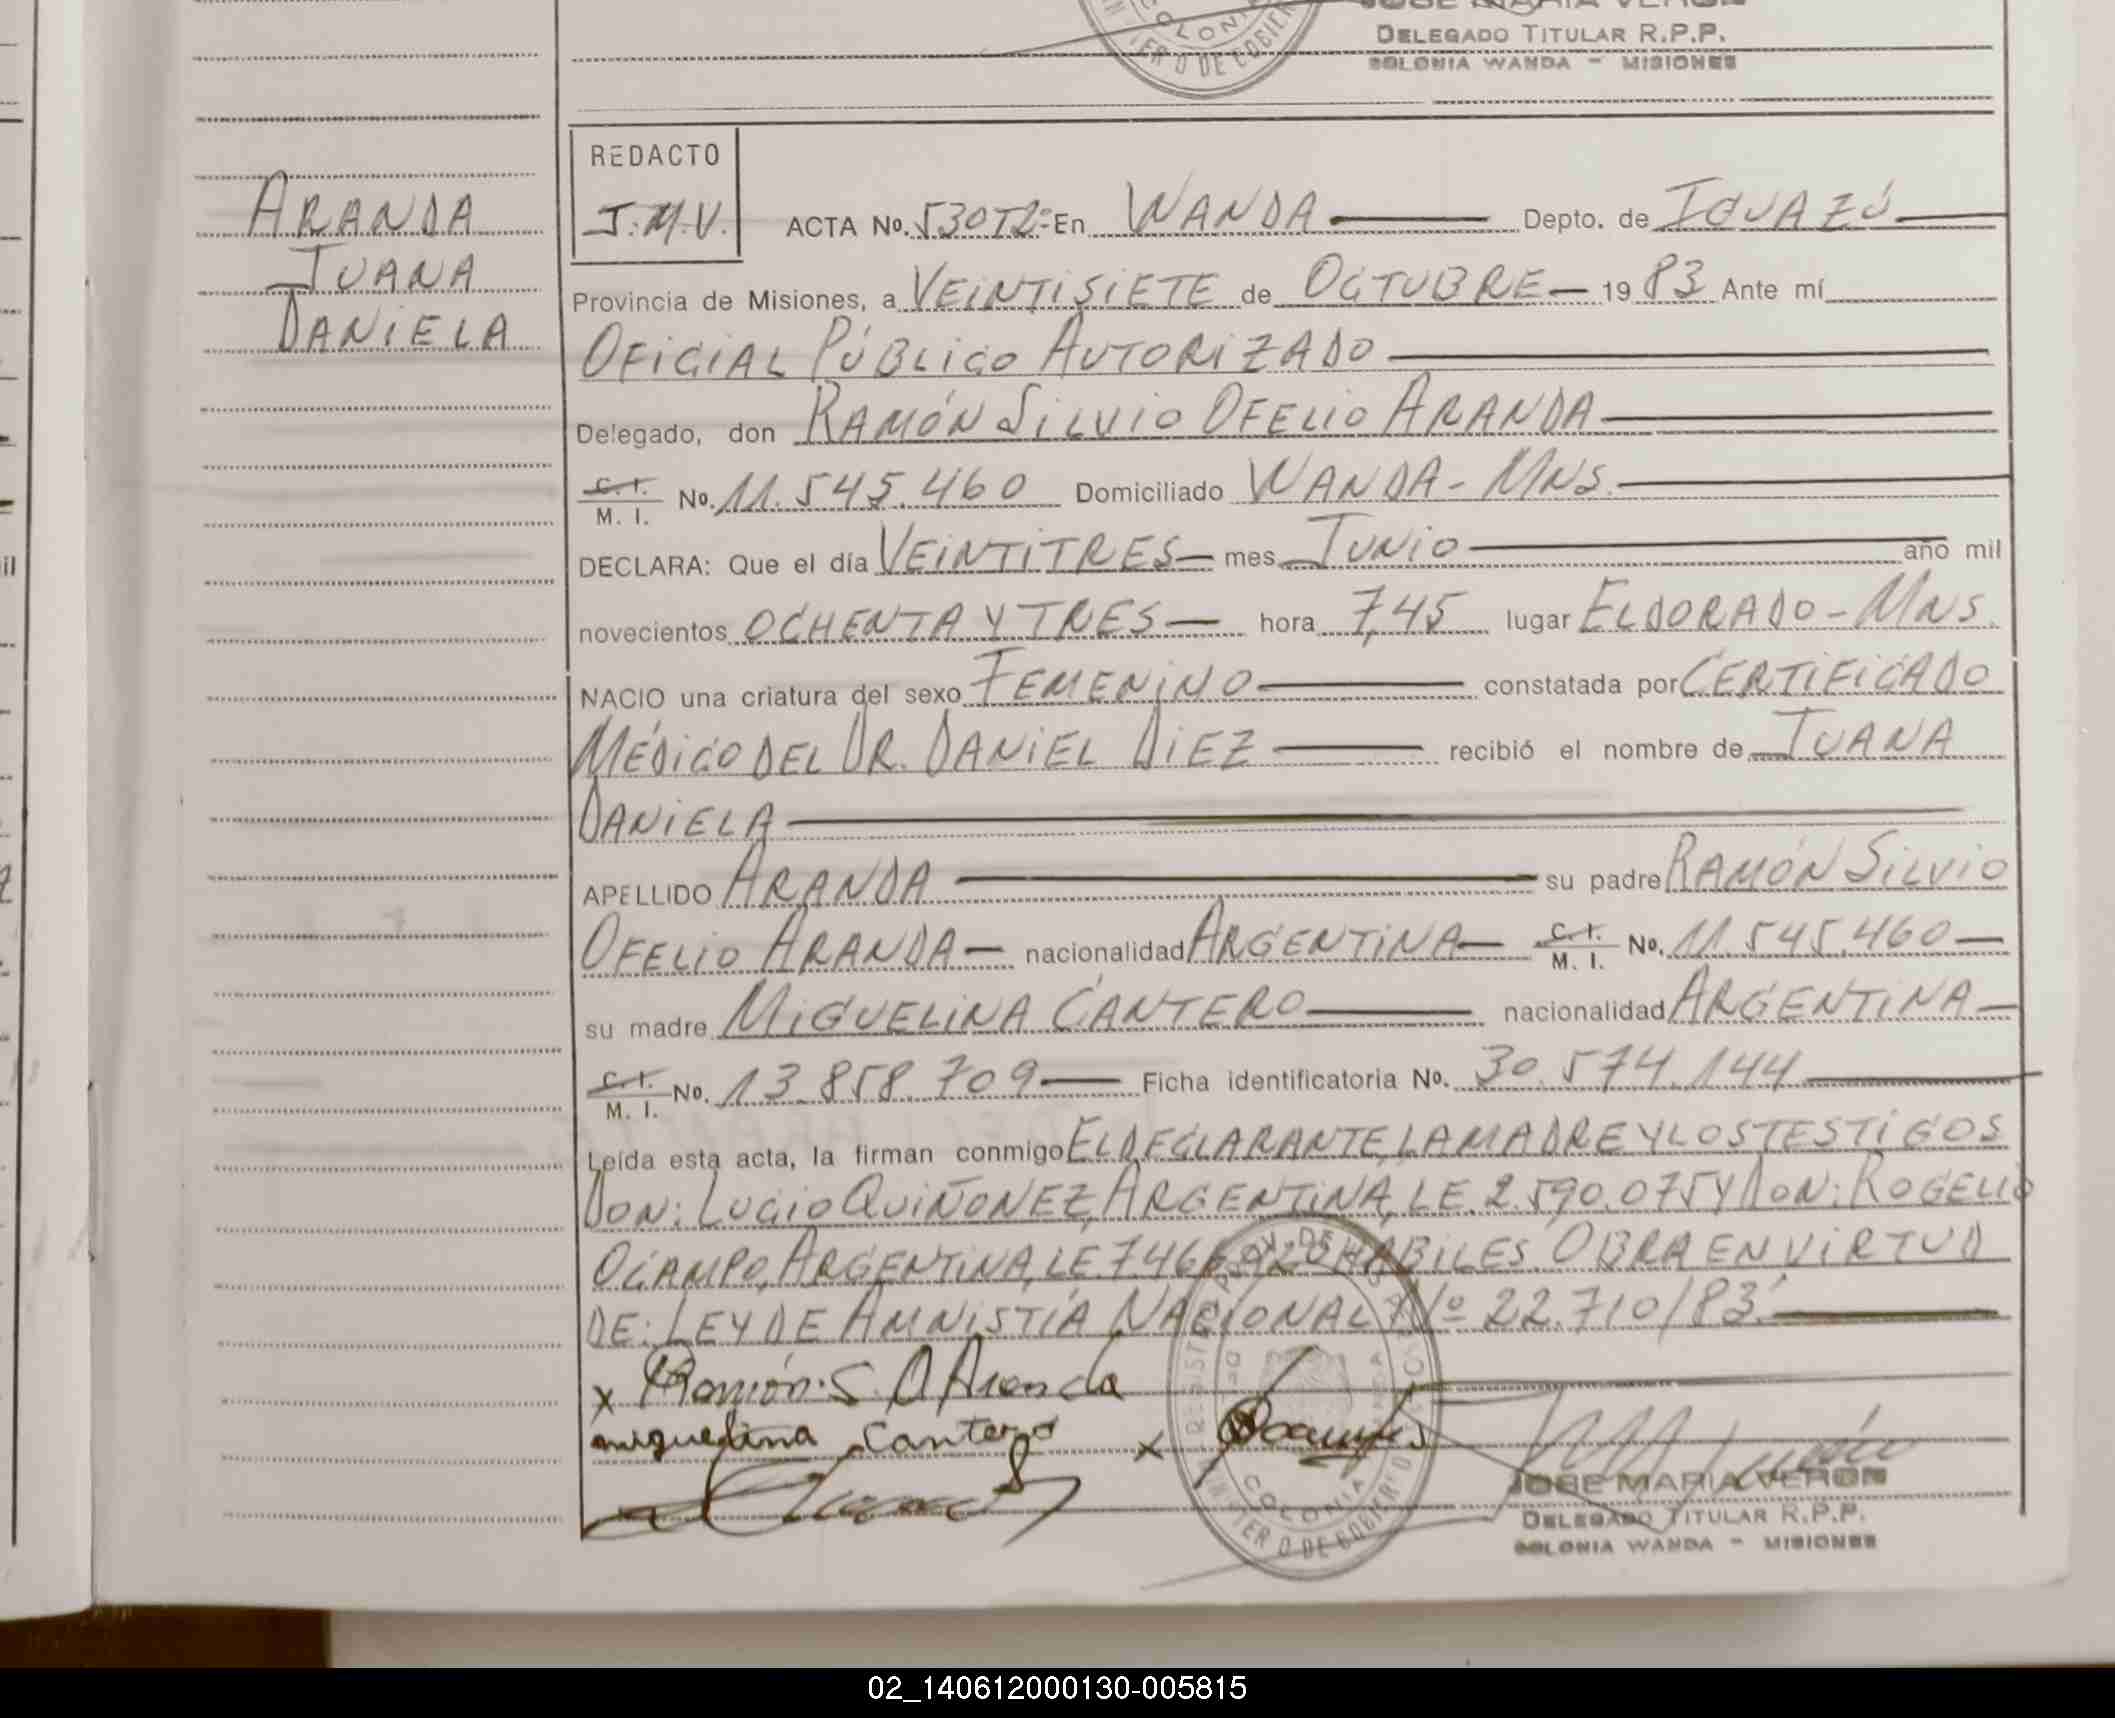 JOSE MARIA VERON
DELEGADO TITULAR R.P.P.
COLONIA WANDA - MISIONES
COLONIA
DE GOBIER
ARANDA
JUANA
DANIELA
REDACTO
J.M.V.
ACTA No. 530T2= En WANDA Depto. de IGUAZÚ
Provincia de Misiones, a VEINTISIETE de OCTUBRE 19 83 Ante mí
OFICIAL PÚBLICO AUTORIZADO
Delegado, don RAMÓN SILVIO OFELIO ARANDA
C. I.
M. I. No. 11.545.460 Domiciliado WANDA - MNS.
DECLARA: Que el día VEINTITRES mes JUNIO año mil
novecientos OCHENTA Y TRES hora 7,45 lugar ELDORADO - MNS.
NACIO una criatura del sexo FEMENINO constatada por CERTIFICADO
MÉDICO DEL DR. DANIEL DIEZ recibió el nombre de JUANA
DANIELA
APELLIDO ARANDA su padre RAMÓN SILVIO
OFELIO ARANDA nacionalidad ARGENTINA C. I. M. I. No. 11.545.460
su madre MIGUELINA CANTERO nacionalidad ARGENTINA
C. I.
M. I. No. 13.858.709 Ficha identificatoria No. 30.574.144
Leída esta acta, la firman conmigo EL DECLARANTE, LA MADRE Y LOS TESTIGOS
DON: LUCIO QUIÑONEZ, ARGENTINA, L.E. 2.590.075 Y DON: ROGELIO
OCAMPO, ARGENTINA, L.E. HABILES. OBRA EN VIRTUD
DE: LEY DE AMNISTÍA NACIONAL Nº 22.710/83.
x Ramón S. O Aranda
miguelina Cantero x Ocampo
COLONIA
DE GOBIERNO
JOSE MARIA VERON
DELEGADO TITULAR R.P.P.
COLONIA WANDA - MISIONES
02_140612000130-005815